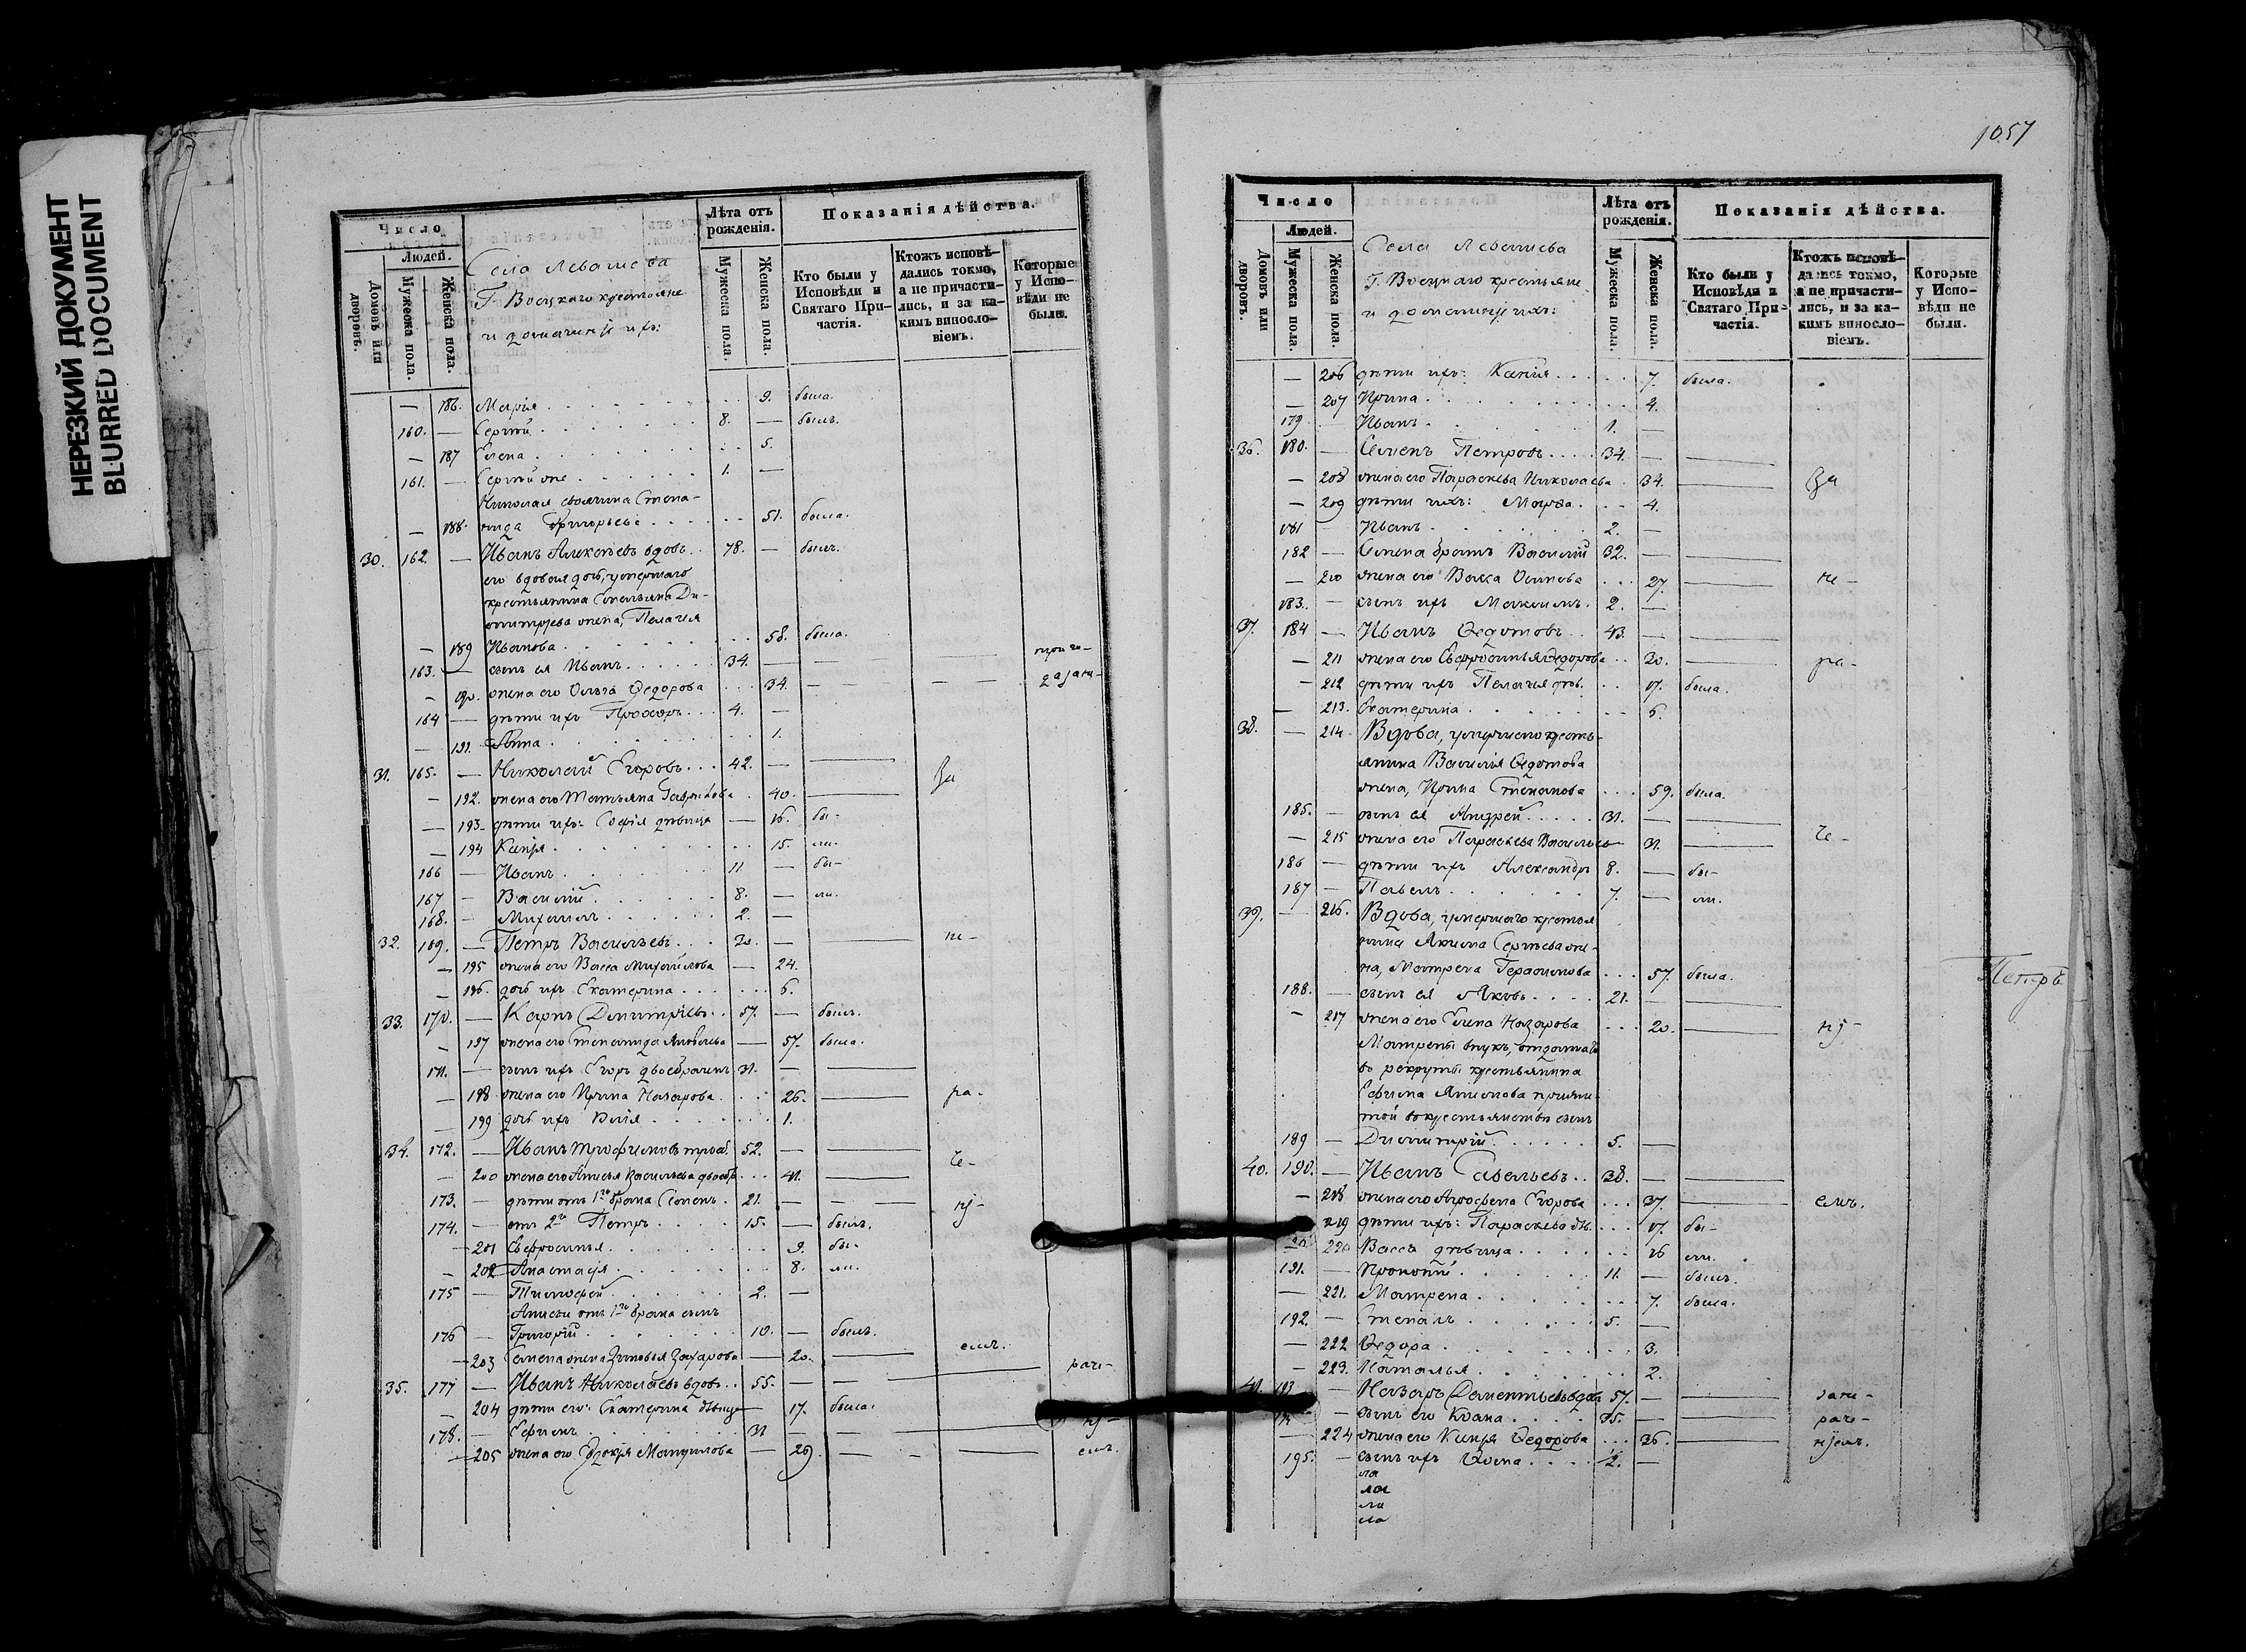 НЕРЕЗКИЙ ДОКУМЕНТ
BLURRED DOCUMENT
Число
Людей.
Домовъ или дворовъ.
Мужеска пола.
Женска пола.
Села Левашева
Г. Воецкаго крестьяне
и домашніе ихъ:
Лѣта отъ рожденія.
Мужеска пола.
Женска пола.
Показанія дѣйства.
Кто были у Исповѣди и Святаго Причастія.
Ктожъ исповѣдались токмо, а не причастились, и за какимъ винословіемъ.
Которые у Исповѣди не были.
— 186. Марія 9. была.
160. — Сергѣй 8. — былъ.
— 187 Елена 5.
161. — Сергѣй же 1. —
Николая своячина Степа-
— 188. нида Григорьева 51. была.
30. 162. — Иванъ Алексѣевъ вдовъ 78. — былъ.
его вдовая дочь, умершаго
крестьянина Емельяна Ди-
митріева жена, Пелагія
— 189 Иванова 58. была.
163. — сынъ ея Иванъ 34. —
— 190. жена его Ольга Ѳедорова 34.
164 — дѣти ихъ Прохоръ 4. —
— 191. Анна 1.
31. 165. — Николай Егоровъ 42. — За
— 192. жена его Татьяна Гаврилова 40.
— 193. дѣти ихъ: Софія дѣвица — 16. бы-
— 194 Ксенія 15. ли.
166 — Иванъ 11 — бы-
167 — Василій 8. — ли.
168. — Михаилъ 2. —
32. 169. — Петръ Васильевъ 30. — не-
— 195 жена его Васса Михайлова — 24.
— 196. дочь ихъ Екатерина 6.
33. 170. — Карпъ Димитріевъ 57. — былъ.
— 197 жена его Степанида Яковлева — 57. была.
171. — сынъ ихъ Егоръ двоебраченъ 31. —
— 198 жена его Ирина Назарова 26. ра-
— 199 дочь ихъ Юлія 1.
34. 172. — Иванъ Трофимовъ троеб. 52. —
— 200 жена его Анисья Васильева двоебр. 41. че-
173. — дѣти отъ 1го брака Семенъ 21. — — ні-
174. — отъ 2го Петръ 15. — былъ.
— 201 Евфросинья 9. бы-
— 202 Анастасія 8. ли.
175 — Тимофей 2. —
Анисьи отъ 1го брака сынъ
176 — Григорій 10. — былъ.
— 203 Семена жена Зиновья Захарова — 20. емъ.
35. 177 — Иванъ Николаевъ вдовъ 55. — — раче-
— 204 дѣти его: Екатерина дѣвица — 17. была.
178. — Ефимъ 31 — — ні-
— 205 жена его Евдокія Мануилова — 29. — емъ.
1057
Число
Людей.
Домовъ или дворовъ.
Мужеска пола.
Женска пола.
Села Левашева
Г. Воецкаго крестьяне
и домашніе ихъ:
Лѣта отъ рожденія.
Мужеска пола.
Женска пола.
Показанія дѣйства.
Кто были у Исповѣди и Святаго Причастія.
Ктожъ исповѣдались токмо, а не причастились, и за какимъ винословіемъ.
Которые у Исповѣди не были.
— 206 дѣти ихъ: Ксенія 7. была.
— 207 Ирина 4.
179 — Иванъ 1. —
36. 180. — Семенъ Петровъ 34. —
— 208 жена его Параскева Николаева 34. За
— 209 дѣти ихъ: Марѳа 4.
181 — Иванъ 2. —
182 — Семена братъ Василій 32. —
— 210 жена его Васса Осипова 27. не-
183. — сынъ ихъ Максимъ 2. —
37. 184 — Иванъ Ѳедотовъ 43. —
— 211 жена его Евфросинья Ѳедорова 30. ра-
— 212 дѣти ихъ Пелагія дѣв. 17. была.
— 213. Екатерина 6.
38. — 214 Вдова, умершаго кресть-
янина Василія Ѳедотова
жена, Ирина Степанова 59. была.
185. — сынъ ея Андрей 31. —
— 215 жена его Параскева Васильева 31. че-
186 — дѣти ихъ Александръ 8. — бы-
187 — Павелъ 7. — ли.
39. — 216. Вдова, умершаго крестья
нина Якима Сергѣева же-
на, Матрена Герасимова 57. была.
188. — сынъ ея Яковъ 21. —
Петръ
— 217 жена его Елена Назарова 20. ні-
Матрены внукъ, отданнаго
въ рекруты крестьянина
Ефима Якимова
189 — Димитрій 5. —
40. 190. — Иванъ Савельевъ 38. —
— 218 жена его Агрофена Егорова 37. емъ.
219 дѣти ихъ: Параскева дѣв. 17. бы-
220 Васса дѣвица 16 ли.
191. — Прокопій 11. — былъ.
— 221. Матрена 7. была.
192. — Степанъ 5. —
— 222 Ѳедора 3.
— 223. Наталья 2.
41. 193 — Назаръ Дементьевъ вдовъ 57. — зане-
— сынъ его Козма 35. — раче-
— 224 жена его Ксенія Ѳедорова 36. ніемъ.
195. — сынъ ихъ Ѳома 2. —
ла
ла
ли
ла